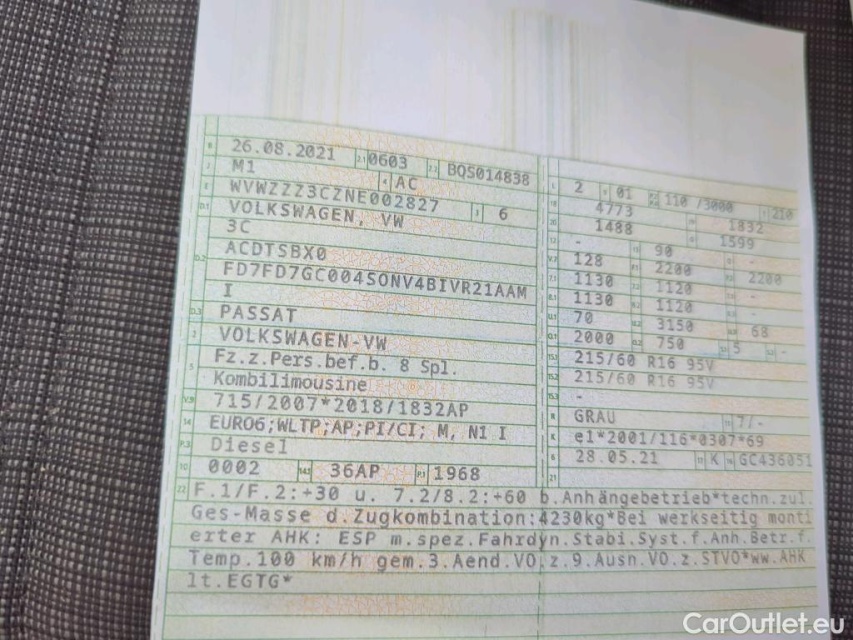 B 26.08.2021 2.1 0603 2.2 BQS014838
J M1 4 AC
E WVWZZZ3CZNE002827 3 6
D.1 VOLKSWAGEN, VW
3C
D.2 ACDTSBX0
FD7FD7GC004SONV4BIVR21AAM
I
D.3 PASSAT
2 VOLKSWAGEN-VW
5 Fz.z.Pers.bef.b. 8 Spl.
Kombilimousine
V.9 715/2007*2018/1832AP
14 EURO6;WLTP;AP;PI/CI; M, N1 I
P.3 Diesel
10 0002 14.1 36AP P.1 1968
L 2 9 01 110 /3000 T 210
18 4773 19 1832
20 1488 G 1599
12 - 13 90 Q -
V.7 128 F.1 2200 F.2 2200
7.1 1130 7.2 1120 7.3 -
8.1 1130 8.2 1120 8.3 -
U.1 70 U.2 3150 U.3 68
O.1 2000 O.2 750 S.1 5 S.2 -
15.1 215/60 R16 95V
15.2 215/60 R16 95V
15.3 -
R GRAU 11 7/-
K e1*2001/116*0307*69
6 28.05.21 17 K 16 GC436051
21
22 F.1/F.2:+30 u. 7.2/8.2:+60 b.Anhängebetrieb*techn.zul.
Ges-Masse d.Zugkombination:4230kg*Bei werkseitig monti
erter AHK: ESP m.spez.Fahrdyn.Stabi.Syst.f.Anh.Betr.f.
Temp.100 km/h gem.3.Aend.VO.z.9.Ausn.VO.z.STVO*ww.AHK
lt.EGTG*
CarOutlet.eu